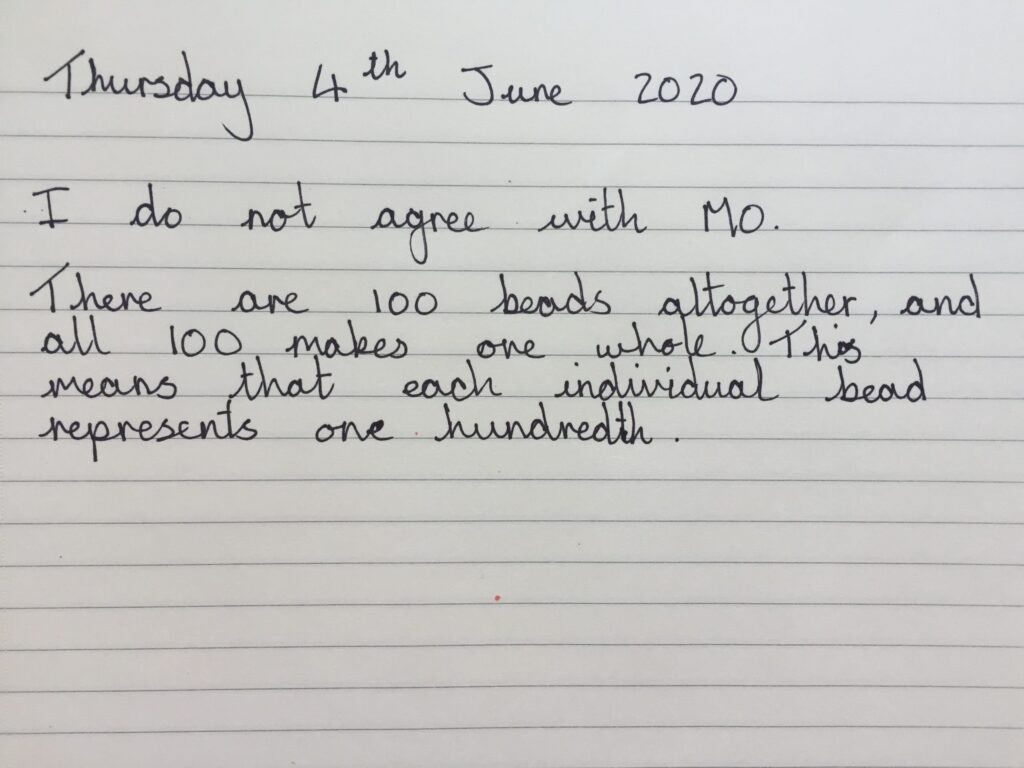 Thursday 4th June 2020
I do not agree with Mo.
There are 100 beads altogether, and
all 100 makes one whole. This
means that each individual bead
represents one hundredth.